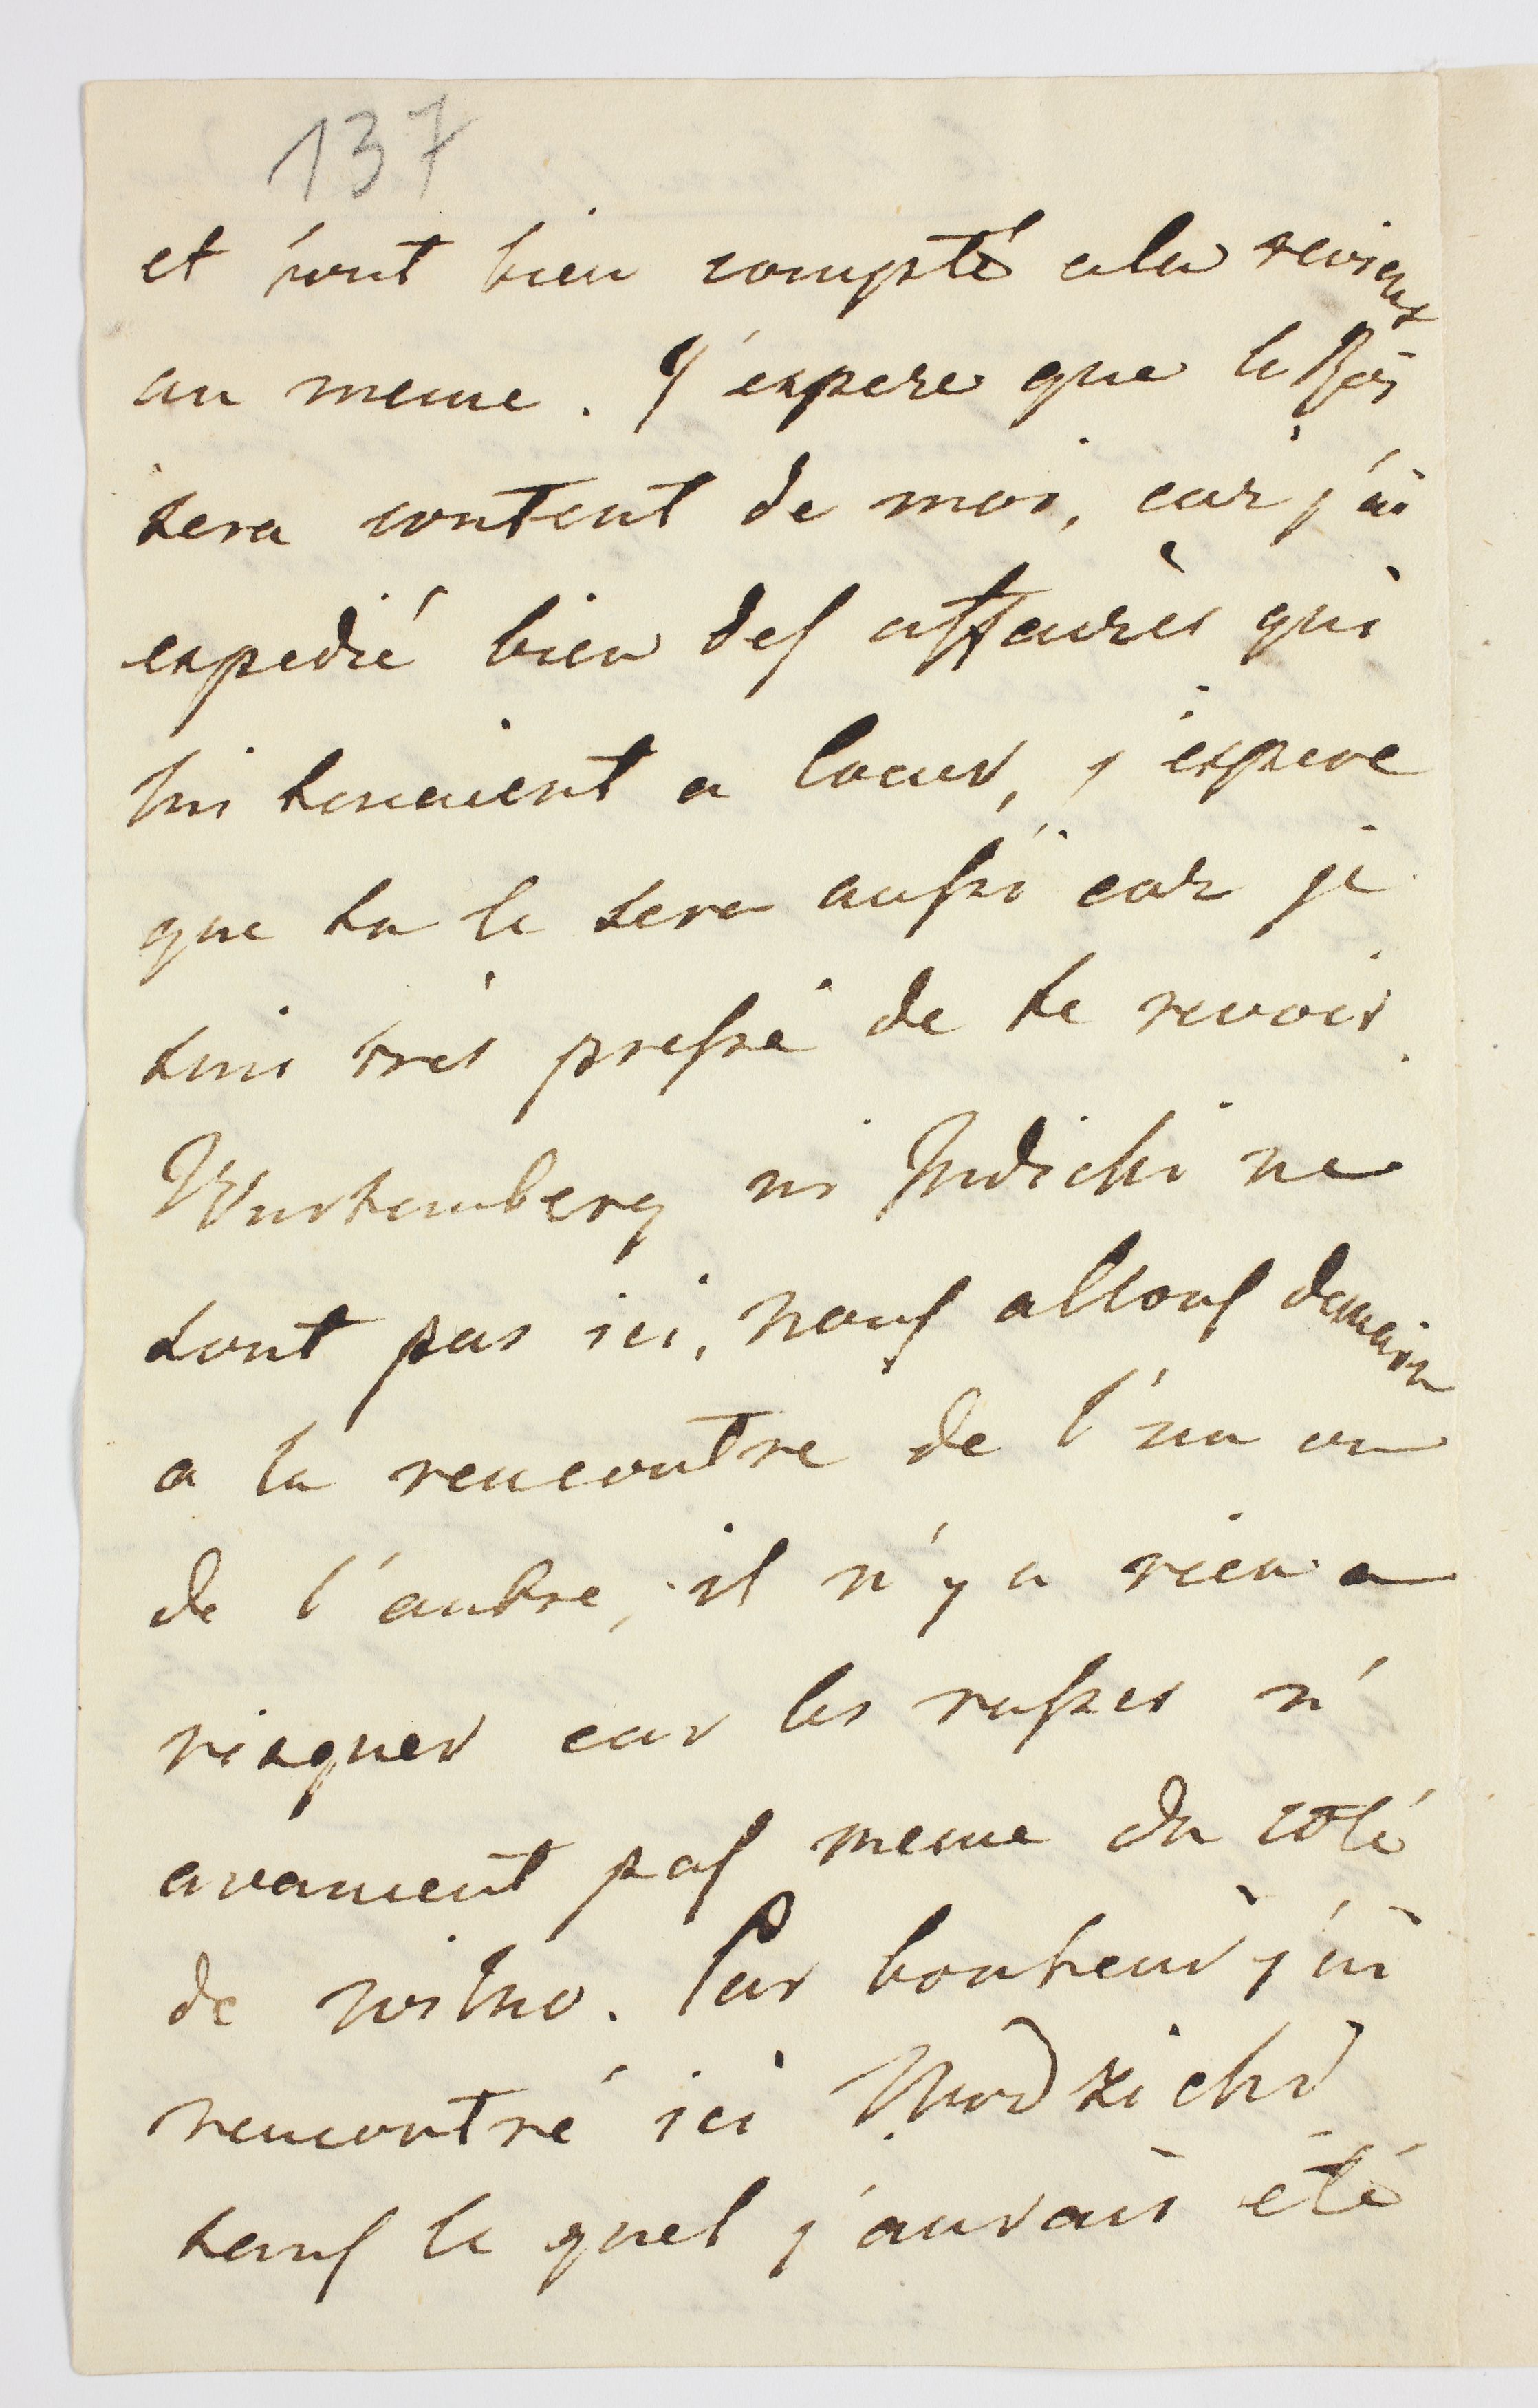 137
et tout bien compté cela revient
au meme. J'espere que le Roi
sera content de moi, car j'ai
expedié bien des affaires qui
lui tenaient a coeur, j'espere
que tu le sera aussi car je
suis très pressé de te revoir
Wurtemberg ni Judicki ne
sont pas ici, nous allons demain
a la rencontre de l'un ou
de l'autre, il n'y a rien a
risquer car les russes n'
avancent pas meme du coté
de Wilno. Par bonheur j'ai
rencontré ici
sans le quel j'aurais été